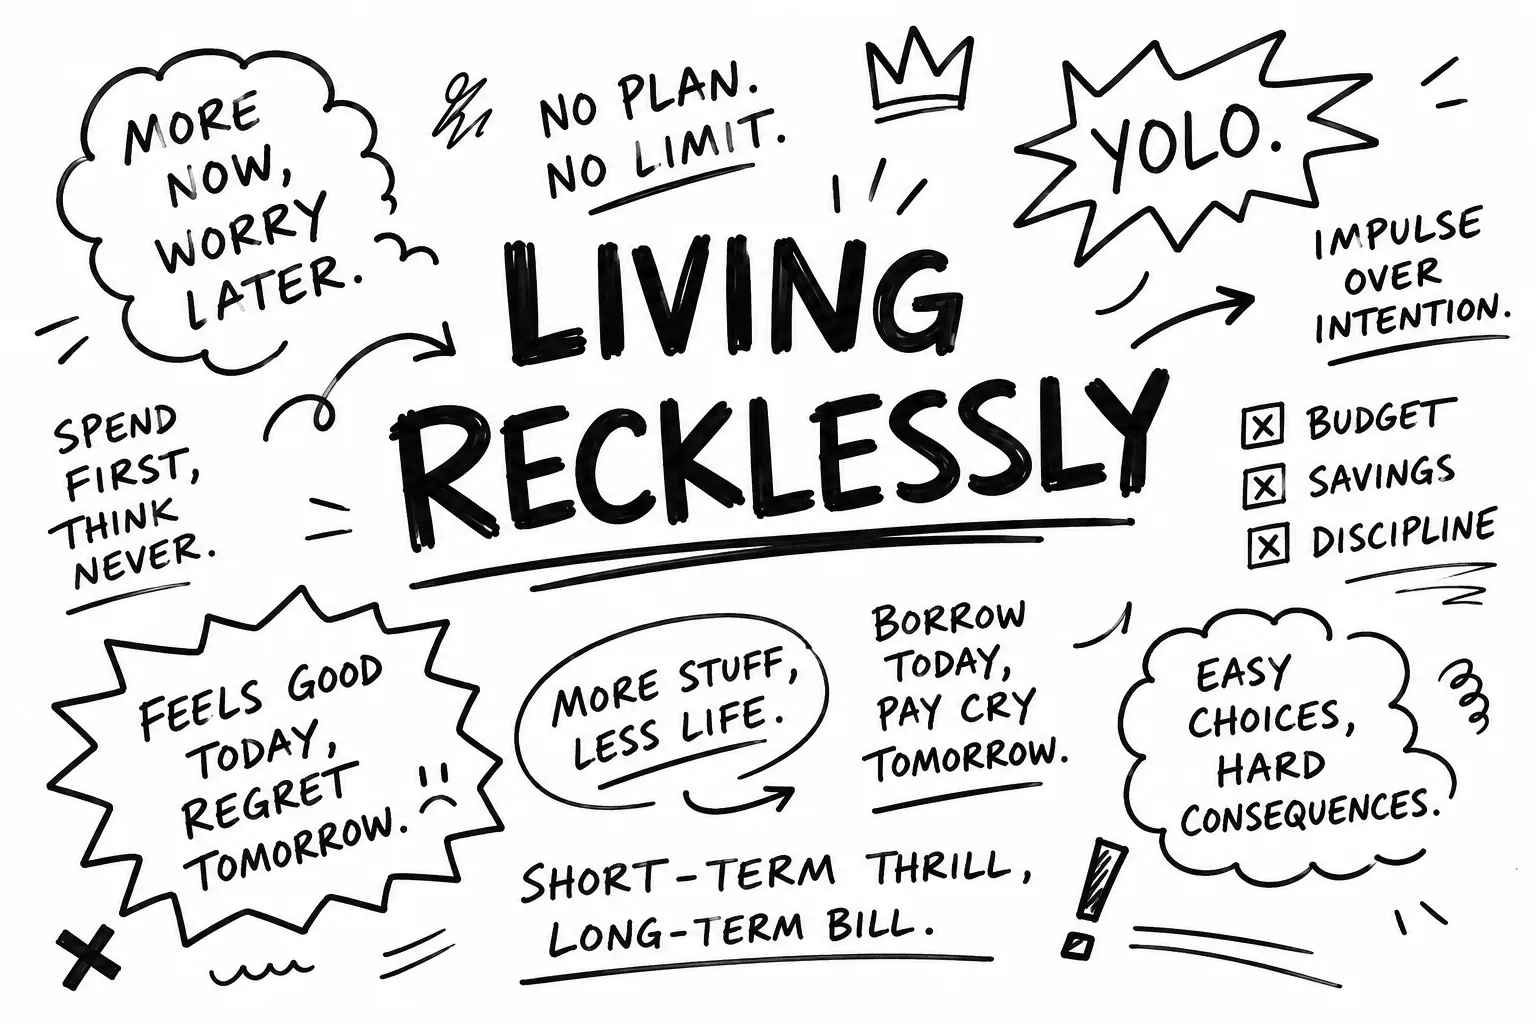 MORE
NOW,
WORRY
LATER.
NO PLAN.
NO LIMIT.
YOLO.
IMPULSE
OVER
INTENTION.
LIVING
RECKLESSLY
SPEND
FIRST,
THINK
NEVER.
BUDGET
SAVINGS
DISCIPLINE
FEELS GOOD
TODAY,
REGRET
TOMORROW.
MORE STUFF,
LESS LIFE.
BORROW
TODAY,
PAY CRY
TOMORROW.
EASY
CHOICES,
HARD
CONSEQUENCES.
SHORT-TERM THRILL,
LONG-TERM BILL.